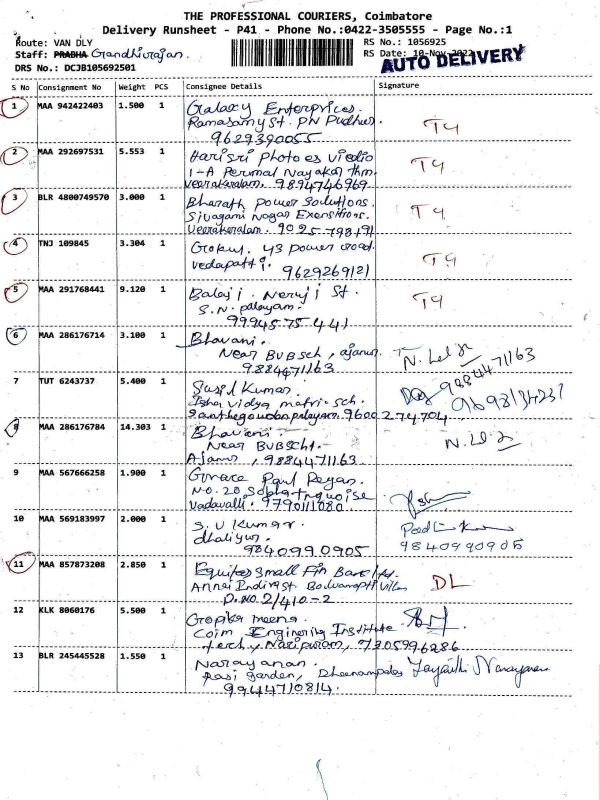 THE PROFESSIONAL COURIERS, Coimbatore
Delivery Runsheet - P41 - Phone No.:0422-3505555 - Page No.:1
Route: VAN DLY RS No.: 1056925
Staff: PRABHA Gandhirajan. RS Date: 10-Nov-2022 AUTO DELIVERY
DRS No.: DCJB105692501
S No Consignment No Weight PCS Consignee Details Signature
1 MAA 942422403 1.500 1 Galaxy Enterprices.
Ramasamy St. PN Pudhur.
9629390055
2 MAA 292697531 5.553 1 Harisri Photo es Viedio
1-A Perumal Nayakar thm.
Veerakeralam. 9894746969
3 BLR 4800749570 3.000 1 Bharath Power Solutions.
Sivagami Nagar
Veerakeralam.
4 TNJ 109845 3.304 1 Gokul. 43 Power road.
Vedapatti. 9629269121
5 MAA 291768441 9.120 1 Balaji. Neruji St.
S.N. Palayam.
9994575441
6 MAA 286176714 3.100 1 Bhavani.
Near BUBSch, Ajanur.
9884471163
9884471163
7 TUT 6243737 5.400 1 Susil Kumar.
Isha Vidya matri. sch.
Santhegoundenpalayam. 9600274704
8 MAA 286176784 14.303 1 Bhavani
Near BUBSch.
Ajanur, 9884471163.
9 MAA 567666258 1.900 1 Paul
No. 20
Vadavalli. 9790111080
10 MAA 569183997 2.000 1 S. U Kumar.
dhaliyur.
9840990905
9840990905
11 MAA 857873208 2.850 1 Equitas Small Fin Bank Ltd.
D.NO. 2/410-2
DL
12 KLK 8060176 5.500 1 Gopika meena
Coim Enginering Institute
tech, Naripuram, 7305996286
13 BLR 245445528 1.550 1 Narayanan.
Rasi Garden,
9944710814.